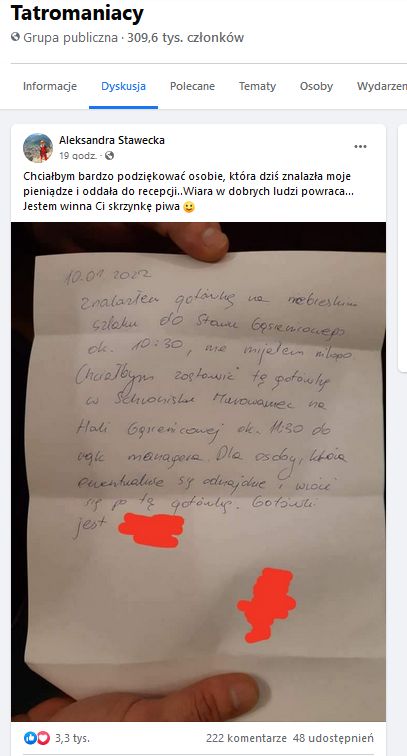 Tatromaniacy
Grupa publiczna · 309,6 tys. członków
Informacje Dyskusja Polecane Tematy Osoby Wydarzen
Aleksandra Stawecka
19 godz. ·
Chciałbym bardzo podziękować osobie, która dziś znalazła moje
pieniądze i oddała do recepcji..Wiara w dobrych ludzi powraca...
Jestem winna Ci skrzynkę piwa 😀
10.01 2022
Znalazłem gotówkę na niebieskim
szlaku do Stawu Gąsienicowego
ok. 10:30, nie mijałem nikogo.
Chciałbym zostawić tę gotówkę
w Schronisku Murowaniec na
Hali Gąsienicowej ok. 11:30 do
rąk managera. Dla osoby, która
ewentualnie się odnajdzie i wróci
się po tę gotówkę. Gotówki
jest
3,3 tys.
222 komentarze 48 udostępnień